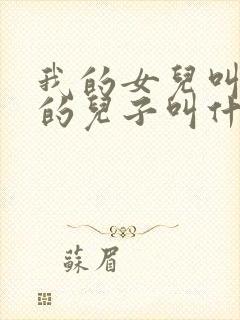 我的女兒叫
的兒子叫什
蘇眉